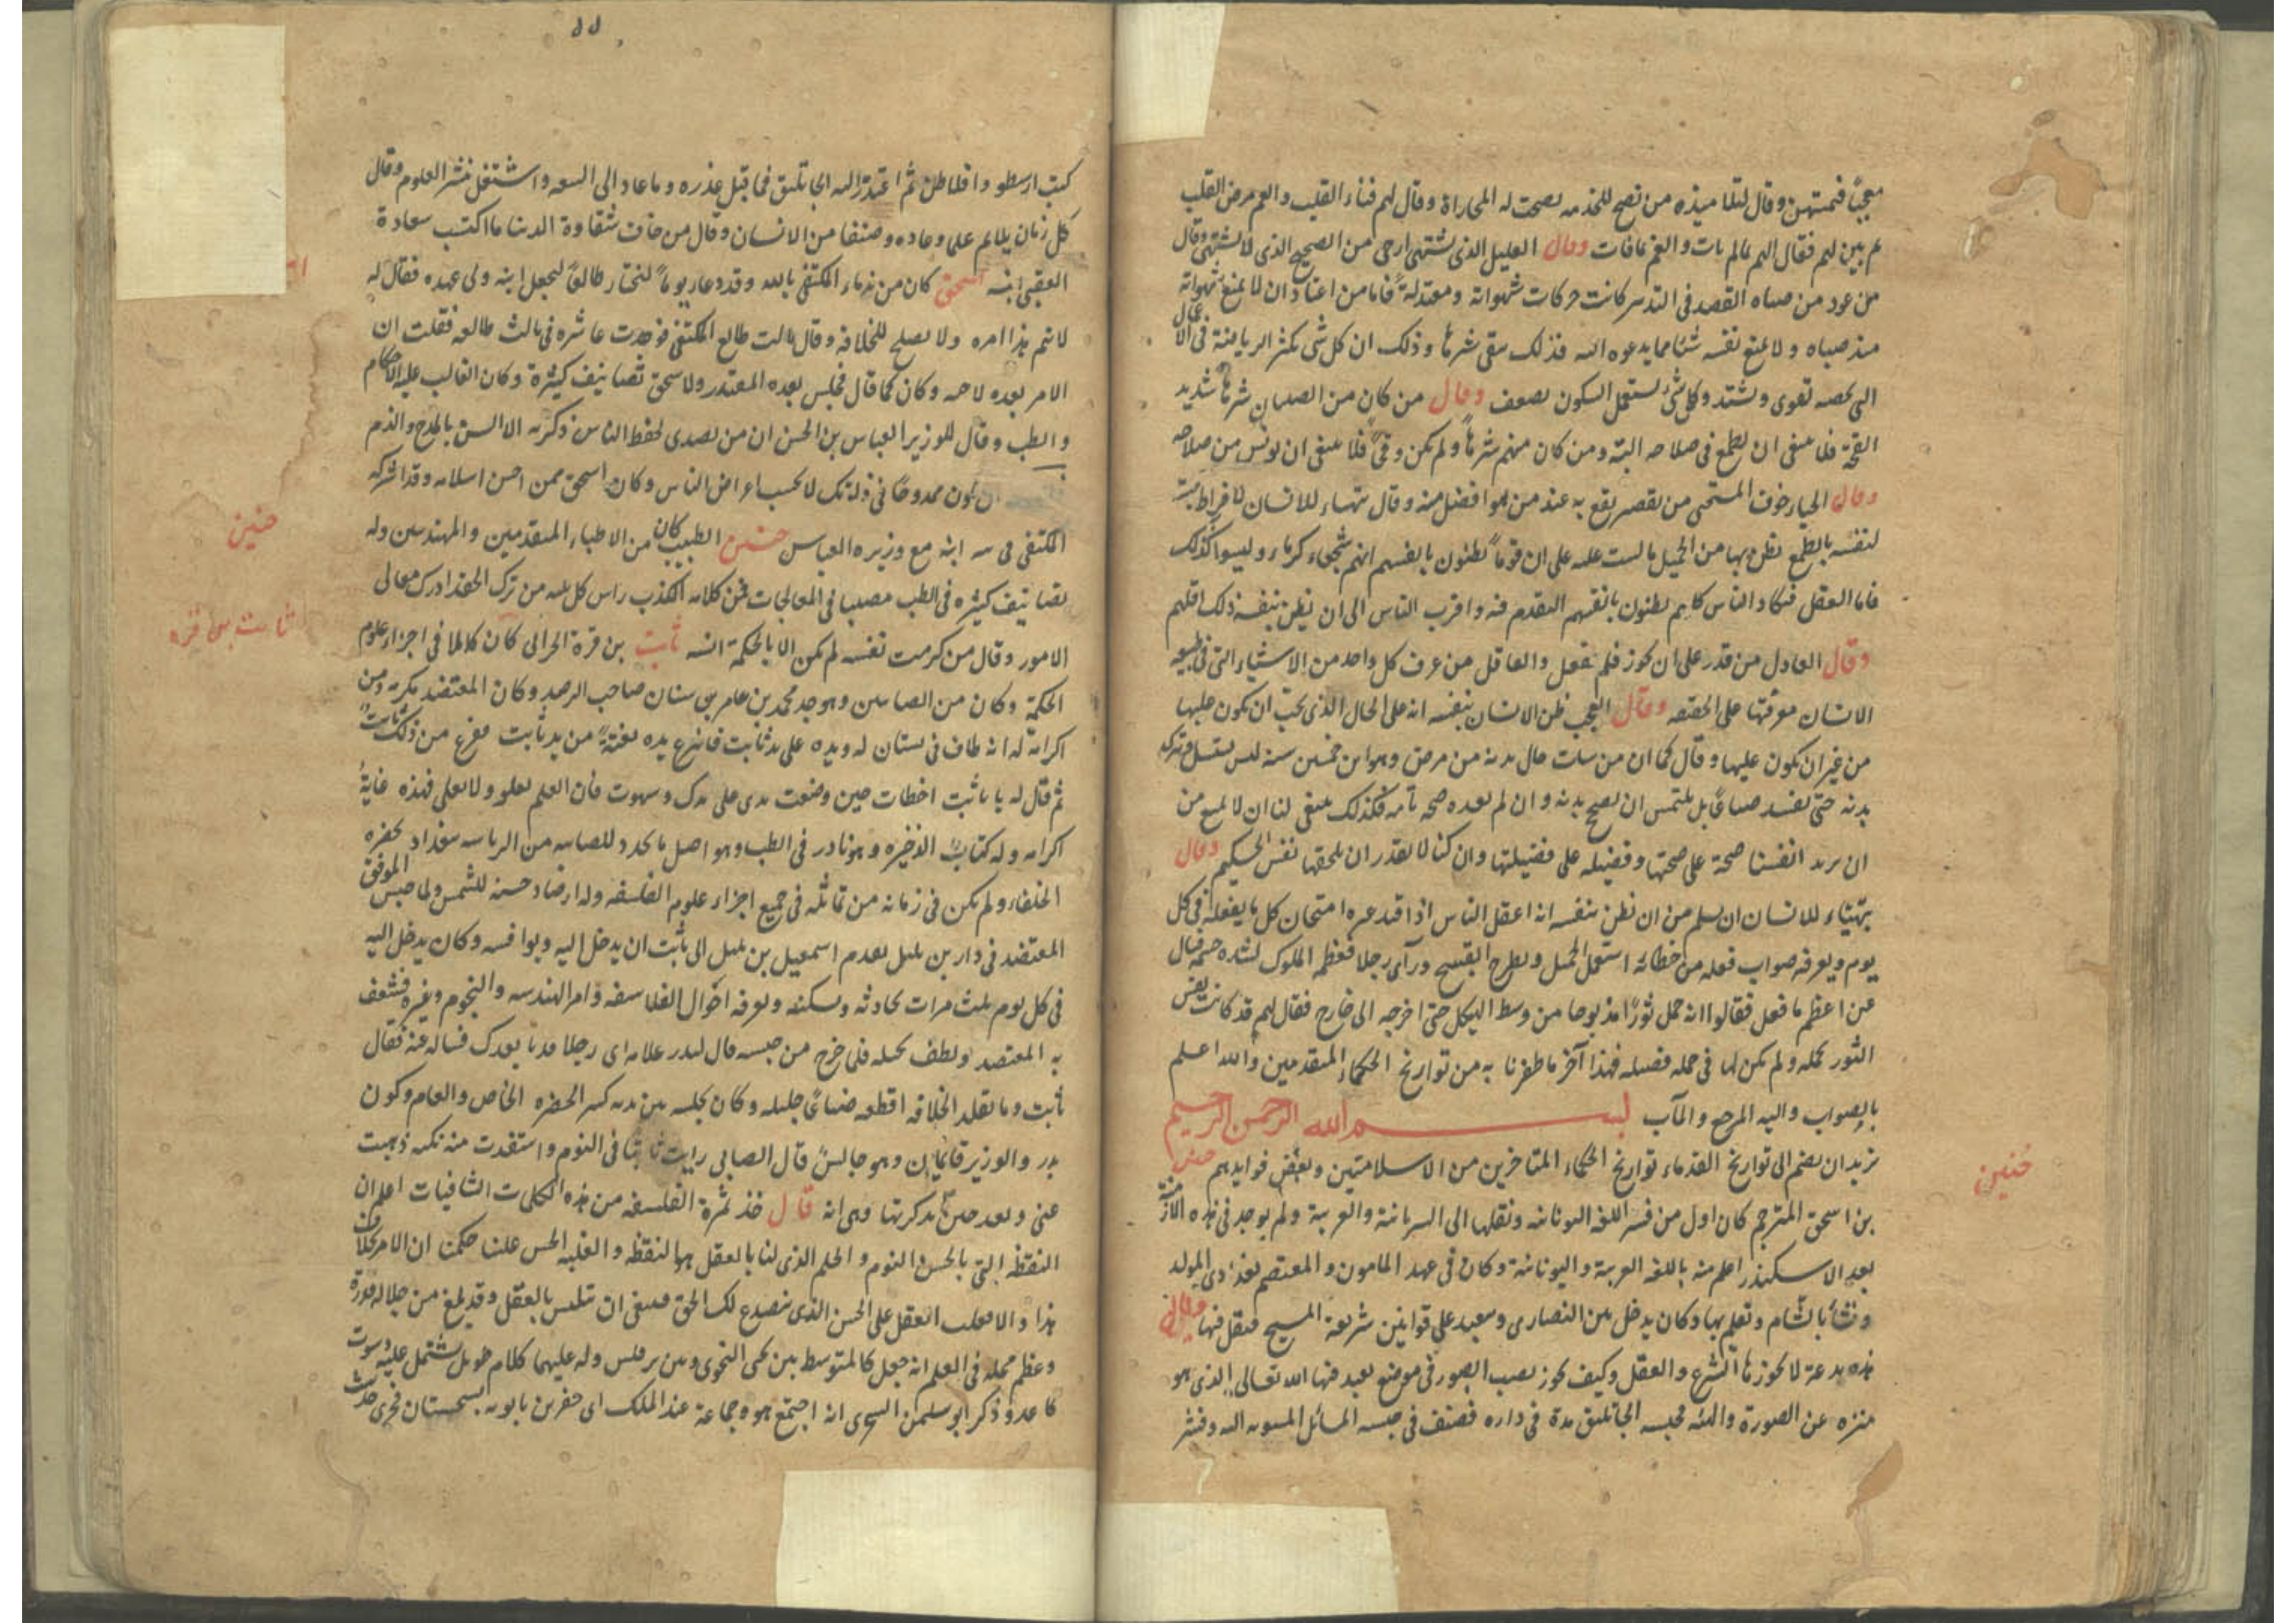 معجبًا فيمتهن وقال لتلاميذه من نصح للخدمه نصحت له المجاراة وقال لهم فناء القلب والهم مرض القلب
ثم بين لهم فقال الهم بما لم يات والغم بما فات وقال العليل الذى يشتهى ارجى من الصحيح الذى لا يشتهى وقال
من عود من صباه القصد فى التدبير كانت حركات شهواته معتدلة فاما من اعتاد ان لا يمنع شهواته
منذ صباه ولا يمنع نفسه شيئا مما يدعوه اليه فذلك يبقى شرها وذلك ان كل شى يكثر الرياضة فى الاعمال
التى تخصه تقوى وتشتد وكل شئ يستعمل السكون يضعف وقال من كان من الصبيان شرها شديد
القحة فلا ينبغى ان يطمع فى صلاحه البتة ومن كان منهم شرهاً ولم يكن وقحًا فلا ينبغى ان يؤيس من صلاحه
وقال الحياء خوف المستحى من نقص يقع به عند من هو افضل منه وقال يتهياء للانسان لافراط محبته
لنفسه بالطمع يظن بها من الجميل ما ليست عليه على ان قوماً يظنون بانفسهم انهم شجعاء كرماء وليسوا كذلك
فاما العقل فيكاد الناس كلهم يظنون بانفسهم التقدم فيه واقرب الناس الى ان يظن بنفسه ذلك اقلهم
وقال العادل من قدر على ان يجوز فلم يفعل والعاقل من عرف كل واحد من الاشياء التى فى طبيعه
الانسان معرفتها على الحقيقه وقال العجب ظن الانسان بنفسه انه على الحال الذى يحب ان يكون عليها
من غير ان يكون عليها وقال كما ان من ساءت حال بدنه من مرض وهو ابن خمسين سنة ليس يستسلم ويترك
بدنه حتى يفسد ضياعًا بل يلتمس ان يصح بدنه وان لم يفده صحه تامه فكذلك ينبغى لنا ان لا نمتنع من
ان نريد انفسنا صحة على صحتها وفضيله على فضيلتها وان كنا لا نقدر ان نلحقها نفس الحكيم وقال
يتهياء للانسان ان يسلم من ان يظن بنفسه انه اعقل الناس اذا قلد غيره امتحان كل ما يفعله فى كل
يوم ويعرفه صواب فعله من خطائه استعمل الجميل ويطرح القبيح ورآى رجلا تعظمه الملوك لشده جسمه فسال
عن اعظم ما فعل فقالوا انه حمل ثورًا مذبوحا من وسط الهيكل حتى اخرجه الى خارج فقال لهم قد كانت نفس
الثور تحمله ولم يكن لها فى حمله فضيله فهذا آخر ما ظفرنا به من تواريخ الحكماء المتقدمين والله اعلم
بالصواب واليه المرجع والمآب بسم الله الرحمن الرحيم
نريد ان نضم الى تواريخ القدماء تواريخ الحكماء المتاخرين من الاسلاميين وبعض فوايدهم حنين
بن اسحق المترجم كان اول من فسر اللغه اليونانيه ونقلها الى السريانية والعربية ولم يوجد فى هذه الازمنة
بعد الاسكندر اعلم منه باللغه العربية واليونانية وكان فى عهد المامون والمعتصم بغدادى المولد
ونشأ بالشام وتعلم بها وكان يدخل بين النصارى ويعبد على قوانين شريعة المسيح فنقل فيها وقال
هذه بدعة لا يجوزها الشرع والعقل وكيف يجوز نصب الصور فى موضع يعبد فيها الله تعالى الذى هو
منزه عن الصورة والهيئه فحبسه الجاثليق مدة فى داره فصنف فى حبسه المسائل المنسوبه اليه وفسر
حنين
٥٥
كتب ارسطو وافلاطن ثم اعتذر اليه الجاثليق فما قبل عذره وما عاد الى البيعه واشتغل بنشر العلوم وقال
كل زمان يلايم على وعاده وصنفا من الانسان وقال من خاف شقاوة الدنيا ما اكتسب سعادة
العقبى ابنه اسحق كان من ندماء المكتفى بالله وقد دعاه يوماً ليختار طالعًا ليجعل ابنه ولى عهده فقال له
لا يتم هذا امره ولا يصلح للخلافة وقال طالعت طالع المكتفى فوجدت عاشره فى ثالث طالعه فقلت ان
الامر بعده لاخيه وكان كما قال فجلس بعده المقتدر ولاسحق تصانيف كثيرة وكان الغالب عليه الاحكام
والطب وقال للوزير العباس بن الحسن ان من تصدى لحفظ الناس ذكرته الالسن بالمدح والذم
ان يكون ممدوحًا فى ذاتك لا بحسب اعراض الناس وكان اسحق ممن احسن اسلامه وقد اشركه
المكتفى فى بيعه ابنه مع وزيره العباس حنين الطبيب كان من الاطباء المتقدمين والمهندسين وله
تصانيف كثيره فى الطب مصيبا فى المعالجات فمن كلامه الكذب راس كل بليه من ترك الحقد ادرك معالى
الامور وقال من كرمت نفسه لم يكن الا بالحكمة انسه ثابت بن قرة الحرانى كان كاملا فى اجزاء علوم
الحكمة وكان من الصابيين وهو جد محمد بن جابر بن سنان صاحب الرصد وكان المعتضد يكرمه ومن
اكرامه له انه طاف فى بستان له ويده على يد ثابت فانزع يده بغتةً من يد ثابت ففزع من ذلك ثابت
ثم قال له يا ثابت اخطات حين وضعت يدى على يدك وسهوت فان العلم يعلو ولا يعلى فهذه غاية
اكرامه وله كتاب الذخيره وهو نادر فى الطب وهو اصل ما تجدد للصابيه من الرياسه ببغداد بحضره
الخلفاء ولم يكن فى زمانه من تماثله فى جميع اجزاء علوم الفلسفه وله ارصاد حسنه للشمس ولما حبس الموفق
المعتضد فى دار بن بلبل تقدم اسمعيل بن بلبل الى ثابت ان يدخل اليه ويوانسه وكان يدخل اليه
فى كل يوم ثلث مرات يحادثه ويسكنه ويعرفه احوال الفلاسفه وامر الهندسه والنجوم وغيره فشغف
به المعتضد ولطف محله فلما خرج من حبسه قال لبدر غلامه اى رجل افدنا بعدك فساله عنه فقال
ثابت ولما تقلد الخلافه اقطعه ضياعًا جليله وكان يجلسه بين يديه كثير الحضره الخاص والعام ويكون
بدر والوزير قائمان وهو جالس قال الصابى رايت ثابتا فى النوم واستفدت منه نكته ذهبت
عنى وبعد حين تذكرتها وهى انه قال خذ ثمرة الفلسفه من هذه الكلمات الشافيات اعلم ان
اليقظه التى بالحس النوم والحلم الذى لنا بالعقل هو اليقظه ولغلبه الحس علينا حكمنا ان الامر بخلاف
هذا والا فغلب العقل على الحس الذى ينصدع لك الحق فينبغى ان تلبس بالعقل وقد بلغ من جلاله قدره
وعظم محله فى العلم انه جعل كالمتوسط بين يحيى النحوى وبين برقلس وله عليهما كلام طويل يشتمل عليه
كاغد وذكر ابو سليمن السجزى انه اجتمع هو وجماعة عند الملك ابى جعفر بن بابويه بسجستان فجرى حديث
حنين
ثابت بن قره